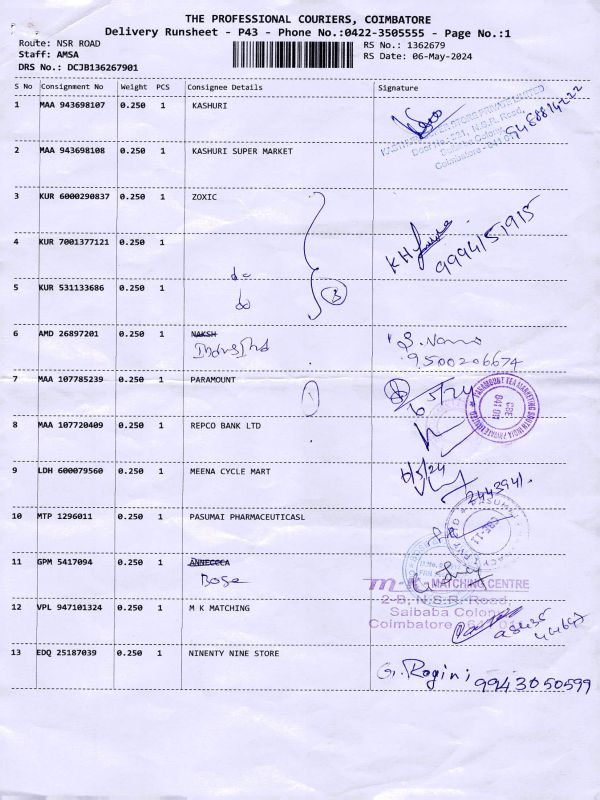 THE PROFESSIONAL COURIERS, COIMBATORE
Delivery Runsheet - P43 - Phone No.:0422-3505555 - Page No.:1
Route: NSR ROAD
RS No.: 1362679
Staff: AMSA
RS Date: 06-May-2024
DRS No.: DCJB136267901
S No Consignment No Weight PCS Consignee Details Signature
1 MAA 943698107 0.250 1 KASHURI
2 MAA 943698108 0.250 1 KASHURI SUPER MARKET
Coimbatore -
3 KUR 6000290837 0.250 1 ZOXIC
4 KUR 7001377121 0.250 1
KH
9994151915
5 KUR 531133686 0.250 1
3
6 AMD 26897201 0.250 1 NAKSH
9500206674
7 MAA 107785239 0.250 1 PARAMOUNT
1
6/5/24
PARAMOUNT TEA MARKETING SOUTH INDIA PRIVATE LIMITED
CBE
641 011
8 MAA 107720409 0.250 1 REPCO BANK LTD
9 LDH 600079560 0.250 1 MEENA CYCLE MART
6/5/24
2443941.
10 MTP 1296011 0.250 1 PASUMAI PHARMACEUTICASL
CBE-11
11 GPM 5417094 0.250 1 ANNECCCA
Bose
MATCHING CENTRE
2-B, N.S.R. Road,
Saibaba Colony
Coimbatore
12 VPL 947101324 0.250 1 M K MATCHING
13 EDQ 25187039 0.250 1 NINENTY NINE STORE
G. Rogini
9943050599